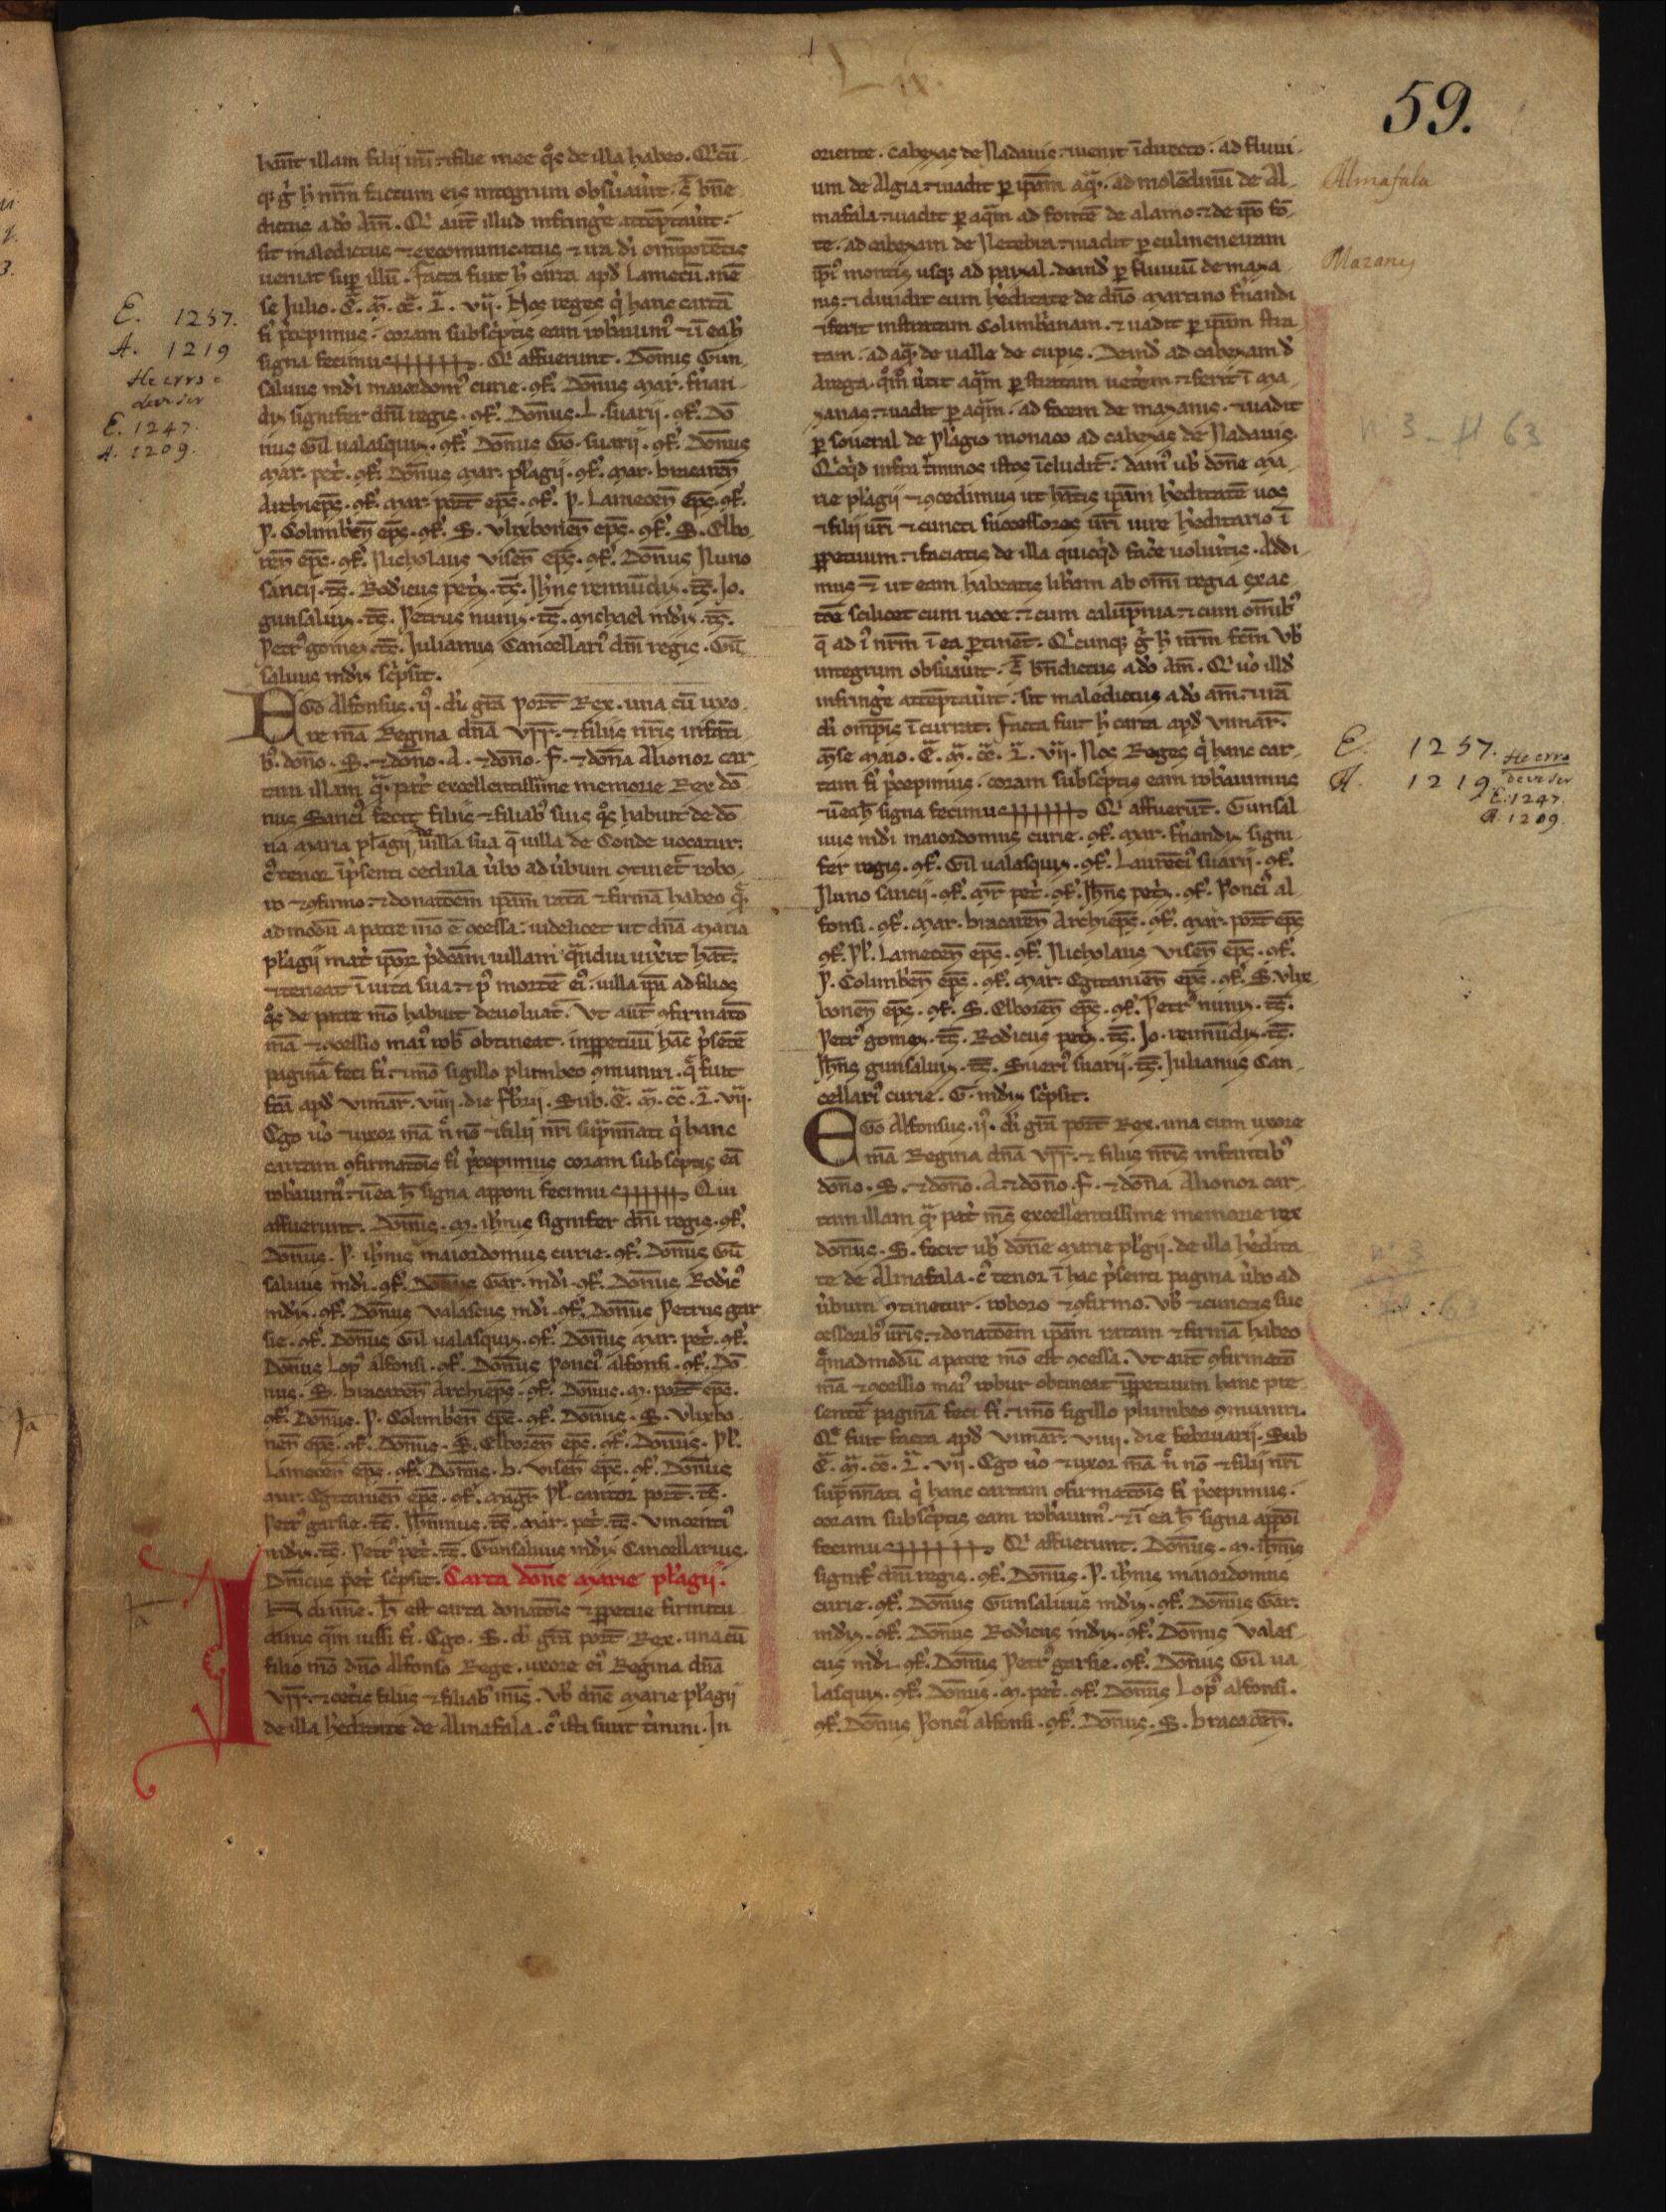 Lix.
59.
hn̄t illam filij mī ⁊ filie mee q̇s de illa habeo. Q̇cū
q ġ h̄ nr̄m factum eis integrum obẜuau̇it ⁊ ē bn̄e
dictus a dō am̄. Q̇ aut̄ illud infringe attēptau̇it
sit maledictus ⁊ excomunicatus ⁊ ira dī omīpotētis
ueniat sup̲ illū. facta fuit h̄ carta apd̄ Lamecū. mē
se Julio. Ē. m̄. cc̄. L̄. vij̄. Nos reges q̇ hanc cartā
fi p̄cepimus coram subsc̄ptis eam robauim᷒ ⁊ ī ea h̄
signa fecimus ┼┼┼┼┼┼. Q̇ affuerunt. Domn̄s Gun
saluus mdi maiordom᷒ curie. ꝯf. Domn̄s Mar. fn̄an
diz signifer dn̄i regis. ꝯf. Domn̄s. L. suarij. ꝯf. Dō
nus Gil ualasquiz. ꝯf. Domn̄s Gō. suarij. ꝯf. Domn̄s
Mar. pet̄. ꝯf. Domn̄s Mar. pl̄agij. ꝯf. Mar. bracaren̄
Archiep̄s. ꝯf. Mar. port̄ ep̄s. ꝯf. P. Lamecen̄ ep̄s. ꝯf.
P. Colimb̄en̄ ep̄s. ꝯf. S. Vlixbonen̄ ep̄s. ꝯf. S. Elbo
ren̄ ep̄s. ꝯf. Nicholaus Visen̄ ep̄s. ꝯf. Domn̄s Nuno
sancij. ts̄. Rod̄icus pet̄z. ts̄. Joh̄ns remūdiz. ts̄. Jo.
gunsaluiz. ts̄. Petrus nuniz. ts̄. Michael mdiz. ts̄.
Petr᷒ gomez. ts̄. Julianus Cancellari᷒ dn̄i regis. Gū
saluus mdiz sc̄psit.
EGo Alfonsus. ij᷒. dī grā port̄ Rex. una cū uxo
re mā Regina dn̄a Vrr̄. ⁊ filiis nr̄is infāti
b᷒. dōno. S. ⁊ dōno. A. ⁊ dōno. f. ⁊ dōna Alionor car
tam illam q̄ pat̄ excellentissime memorie Rex dō
nus Sanci᷒ fecit filiis ⁊ filiab᷒ suis q̇s habuit de dō
na Maria pl̄agij, uilla sua q̄ uilla de Conde uocatur.
c᷒ tenor ī p̄senti cedula u̇bo ad u̇bum ꝯtinet̄ robo
ro ⁊ ꝯfirmo ⁊ donatōem ipām ratā ⁊ firmā habeo q̄
admodū a patre mō ē ꝯcessa. uidelicet ut dn̄a Maria
pl̄agij mat̄ ip̄oꝝ p̄dc̄am uillam q̄ndiu uix̄it hāt.
⁊ teneat ī uita sua ⁊ p᷒ mortē ei᷒ uilla ipā ad filios
q̇s de patre mō habuit deuoluat̄. Vt aut̄ ꝯfirmatō
mā ⁊ ꝯcessio mai᷒ rob̄ obtineat. inp̲petuū hāc p̄sētē
paginā feci fi ⁊ mō sigillo plumbeo ꝯmuniri. q̄ fuit
fc̄a apd̄ Vimar̄. viiij. die febr̄ij. Sub. Ē. m̄. cc̄. L̄. vij̄.
Ego u̇o ⁊ uxor mā n᷒ nō ⁊ filij nr̄i sup̄nn̄ati q̇ hanc
cartam ꝯfirmatōis fi p̄cepimus coram subsc̄ptis eā
robauim᷒ ⁊ ī ea h̄ signa apponi fecimus ┼┼┼┼┼┼. Qui
affuerunt. Domn̄s. M. ioh̄nis signifer dn̄i regis. ꝯf.
Domn̄s. P. ioh̄nis maiordomus curie. ꝯf. Domn̄s Gū
saluus mdi. ꝯf. Domn̄s Gar. mdi. ꝯf. Domn̄s Rodic᷒
mdiz. ꝯf. Domn̄s Valascus mdi. ꝯf. Domn̄s Petrus gar
sie. ꝯf. Domn̄s Gil ualasquiz. ꝯf. Domn̄s Mar. pet̄. ꝯf.
Domn̄s Lop᷒ alfonsi. ꝯf. Domn̄s Ponci᷒ alfonsi. ꝯf. Dō
nus. S. bracaren̄ Archiep̄s. ꝯf. Domn̄s. M. port̄ ep̄s.
ꝯf. Domn̄s. P. Colimb̄en̄ ep̄s. ꝯf. Domn̄s. S. Vlixbo
nen̄ ep̄s. ꝯf. Domn̄s. S. Elboren̄ ep̄s. ꝯf. Domn̄s. Pl̄.
Lamecen̄ ep̄s. ꝯf. Domn̄s. b. Visen̄ ep̄s. ꝯf. Domn̄s
mar. Egitanien̄ ep̄s. ꝯf. Magr̄ Pl̄. cantor port̄. ts̄.
Petr᷒ garsie. ts̄. Joh̄ninus. ts̄. Mar. pet̄. ts̄. Vincenti᷒
mdiz. ts̄. Petr᷒ pet̄. ts̄. Gunsaluus mdiz Cancellarius.
Dn̄icus pet̄ sc̄psit. Carta dōne Marie pl̄agij.
IN dī nn̄e. H̄ est carta donatōis ⁊ p̲petue firmitu
dinis q̄m iussi fi. Ego. S. dī grā port̄ Rex. una cū
filio mō dn̄o Alfonso Rege. uxore ei᷒ Regina dn̄a
Vrr̄. ⁊ cet̄is filiis ⁊ filiab᷒ mīs. Vob̄ dn̄e Marie pl̄agij
de illa h̄editate de Almafala. c᷒ isti sunt t̄mini. In
oriente. cabezas de Nadauis. ⁊ uenit ī directo. ad fluui
um de Algia. ⁊ uadit p̲ ipām aq̄. ad molēdinū de Al
mafala. ⁊ uadit p̲ aq̄m ad fontē de alamo. ⁊ de ip̄o fō
te. ad cabezam de Netebra. ⁊ uadit p̲ culmen euam
ip̄i᷒ montis usq ad parzal. deind̄ p̲ fluuiū de maza
nis. ⁊ diuidit cum h̄editate de dn̄o Martino fn̄andi
⁊ ferit in stratam Colimb̄anam. ⁊ uadit p̲ ipām stra
tam. ad aq̄. de ualle de cupis. Deind̄ ad cabezam d̄
Arega. q̊m᷒ u̇tit aq̄m p̲ stratam uet̄em. ⁊ ferit ī ma
zanas. ⁊ uadit p̲ aq̄m. ad focem de mazanis. ⁊ uadit
p̲ soueral de Pl̄agio monaco ad cabezas de Nadauis.
Q̇cq̇d infra t̄minos istos īcludit̄. dam᷒ uob̄ dōne Ma
rie pl̄agij ⁊ ꝯcedimus ut hātis ipām h̄editatē uos
⁊ filij ur̄i ⁊ cuncti successores ur̄i iure h̄editario ī
p̲petuum. ⁊ faciatis de illa quicq̇d fac̄e uolu̇itis. Addi
mus ⁊ ut eam habeatis lib̄am ab omī regia exac
tōe scilicet cum uoce. ⁊ cum calūpnia. ⁊ cum omīb᷒
q̄ ad i᷒ nr̄m ī ea p̲tinēt. Q̇cunq ġ h̄ nr̄m fc̄m uob̄
integrum obẜuau̇it. ē bn̄dictus a dō am̄. Q̇ u̇o illd̄
infringe attēptau̇it. sit maledictus a dō am̄. ⁊ irā
dī omp̄is īcurrat. facta fuit h̄ carta apd̄ Vimar̄.
m̄se Maio. Ē. m̄. cc̄. L̄. vij̄. Nos Reges q̇ hanc car
tam fi p̄cepimus. coram subsc̄ptis eam robauimus
⁊ ī ea h̄ signa fecimus ┼┼┼┼┼┼. Q̇ affuerūt. Gunsal
uus mdi maiordomus curie. ꝯf. Mar. fn̄andiz signi
fer regis. ꝯf. Gil ualasquiz. ꝯf. Laurēci᷒ suarij. ꝯf.
Nuno sancij. ꝯf. Mar̄ pet̄. ꝯf. Joh̄ns pet̄z. ꝯf. Ponci᷒ al
fonsi. ꝯf. Mar. bracaren̄ Archiep̄s. ꝯf. Mar. port̄ ep̄s
ꝯf. Pl̄. Lamecen̄ ep̄s. ꝯf. Nicholaus Visen̄ ep̄s. ꝯf.
P. Colimb̄en̄ ep̄s. ꝯf. Mar. Egitanien̄ ep̄s. ꝯf. S. Vlix
bonen̄ ep̄s. ꝯf. S. Elboren̄ ep̄s. ꝯf. Petr᷒ nuniz. ts̄.
Petr᷒ gomez. ts̄. Rod̄icus petz. ts̄. Jo. reimūdiz. ts̄.
Joh̄ns gunsaluiz. ts̄. Sueri᷒ suarij. ts̄. Julianus Can
cellari᷒ curie. G. mdiz sc̄psit.
EGo Alfonsus. ij᷒. dī grā port̄ Rex. una cum uxore
mā Regina dn̄a Vrr̄. ⁊ filiis nr̄is infantib᷒
dōno. S. ⁊ dōno. A. ⁊ dōno. f. ⁊ dōna Alionor car
tam illam q̄ pat̄ ms̄ excellentissime memorie rex
domn̄s. S. fecit uob̄ dōne Marie pl̄agij. de illa h̄edita
te de Almafala. c᷒ tenor ī hac p̄senti pagina u̇bo ad
u̇bum ꝯtinetur. roboro ⁊ ꝯfirmo. Vob̄ ⁊ cunctis suc
cessorib᷒ ur̄is. ⁊ donatōem ipām ratam ⁊ firmā habeo
q̄madmodū a patre mō est ꝯcessa. Vt aut̄ ꝯfirmatō
mā ⁊ ꝯcessio mai᷒ robur obtineat īp̲petuum hanc pre
sentē paginā feci fi. ⁊ mō sigillo plumbeo ꝯmuniri.
Q̄ fuit facta apd̄ Vimar̄. viiij. die februarij. Sub
Ē. m̄. cc̄. L̄. vij̄. Ego u̇o ⁊ uxor mā n᷒ nō ⁊ filij nr̄i
sup̄nn̄ati q̇ hanc cartam ꝯfirmatōis fi p̄cepimus.
coram subsc̄ptis eam robauim᷒. ⁊ ī ea h̄ signa appōi
fecimus ┼┼┼┼┼┼. Q̇ affuerunt. Domn̄s. M. ioh̄nis
signif̄ dn̄i regis. ꝯf. Domn̄s. P. ioh̄nis maiordomus
curie. ꝯf. Domn̄s Gunsaluus mdiz. ꝯf. Domn̄s Gar.
mdiz. ꝯf. Domn̄s Rodicus mdiz. ꝯf. Domn̄s Valas
cus mdi. ꝯf. Domn̄s Petr᷒ garsie. ꝯf. Domn̄s Gil ua
lasquiz. ꝯf. Domn̄s. M. pet̄. ꝯf. Domn̄s Lop᷒ alfonsi.
ꝯf. Domn̄s Ponci᷒ alfonsi. ꝯf. Domn̄s. S. bracaren̄.
E. 1257.
A. 1219
He erro e
deve ser
E. 1247.
A. 1209.
Almafala
Mazans
E. 1257.
A. 1219.
He erro
deve ser
E. 1247.
A. 1209.
n 3 - fl 63
n 3
fl. 63